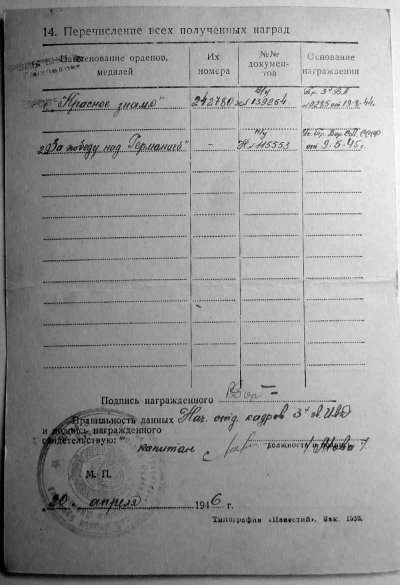 14. Перечисление всех полученных наград
Наименование орденов, медалей
Их номера
№№ документов
Основание награждения
"Красное знамя"
242780
в/у
139264
Пр. 3
0285 от 19.8.44г.
2) "За победу над Германией"
-
П/у
Н № 115553
Ук. Пр. Вер. СССР
от 9.5.45г.
Подпись награжденного
Правильность данных Нач. отд. кадров 3
и подпись награжденного
свидетельствую:
капитан
должность и подпись
М. П.
20. апреля 1946 г.
Типография «Известий». Зак. 1939.